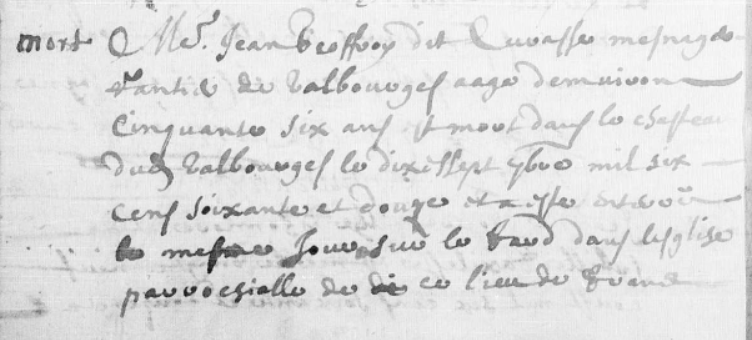 mort Me.r Jean Geoffroy dit Lavasse mesnager
rantier de Valbourges aage demviron
Cinquante six ans est mort dans le chasteau
dud Valbourges le dixessept 9bre mil six
cens soixante et douze et a este
le mesme Jour sur le tard dans lesglise
parrochialle de ce lieu de Trans